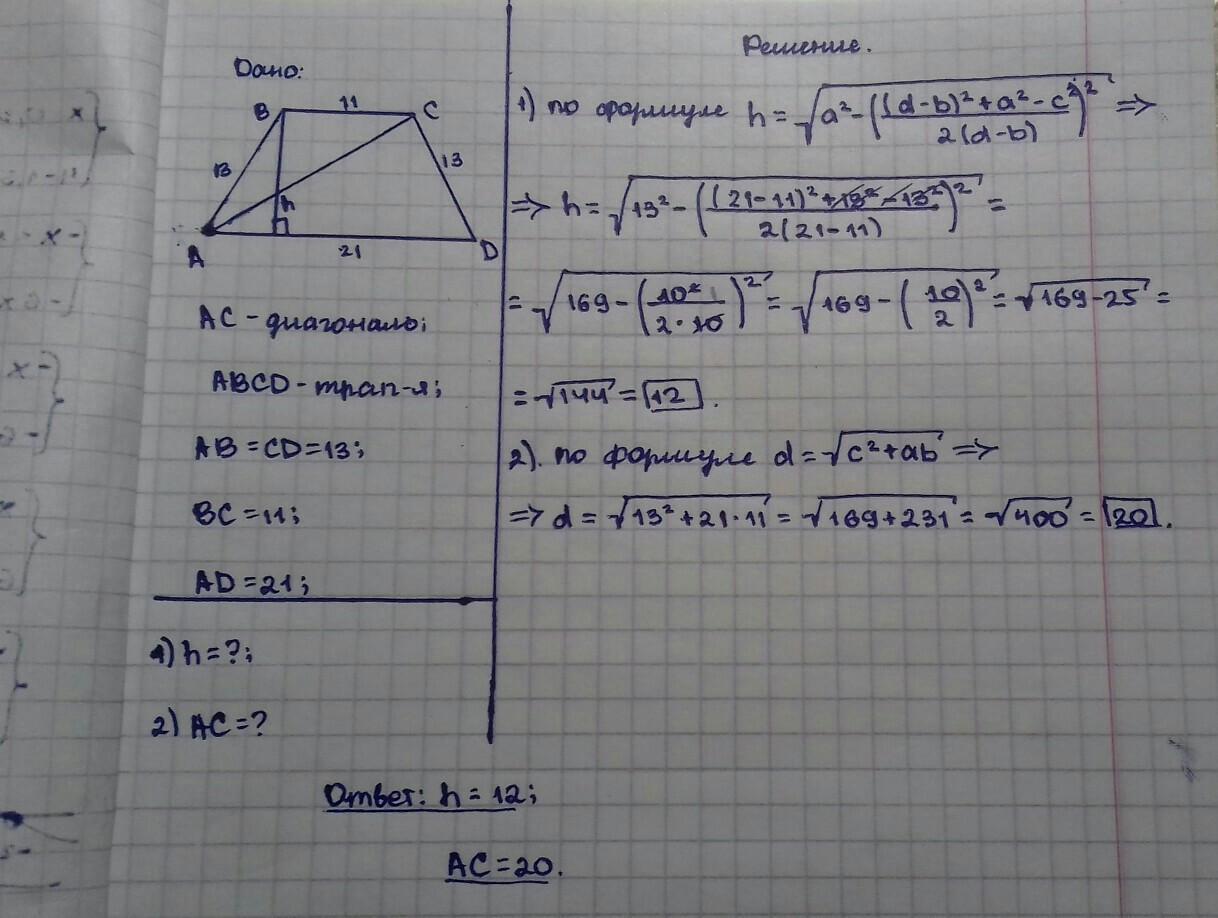 Дано:
B 11 C
13 13
h
A 21 D
AC - диагональ;
ABCD - трап-я;
AB = CD = 13;
BC = 11;
AD = 21;
1) h = ?;
2) AC = ?
Решение.
1) по формуле h = √(a² - (((d-b)² + a² - c²)/(2(d-b)))²) =>
=> h = √(13² - (((21-11)² + 13² - 13²)/(2(21-11)))²) =
= √(169 - (10²/(2·10))²) = √(169 - (10/2)²) = √(169-25) =
= √144 = 12.
2). по формуле d = √(c² + ab) =>
=> d = √(13² + 21·11) = √(169 + 231) = √400 = 20.
Ответ: h = 12;
AC = 20.